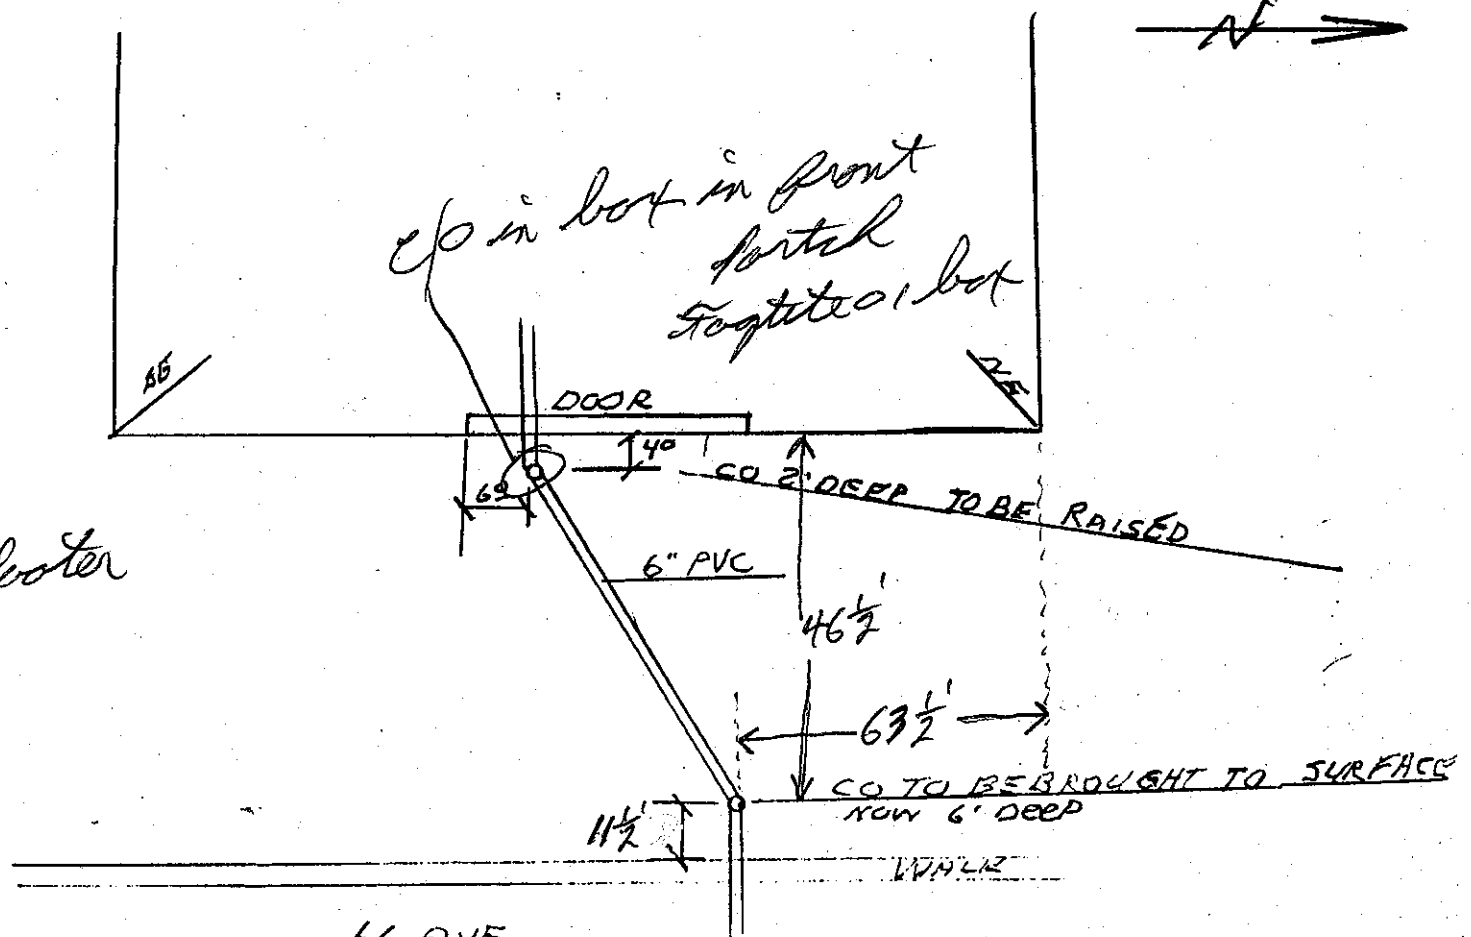 N
C/O in box in front
Portch
Fogtite 01 box
DOOR
4⁰
CO 2' DEEP TO BE RAISED
6⁰
6" PVC
46 1/2'
63 1/2'
CO TO BE BROUGHT TO SURFACE
NOW 6' DEEP
11 1/2'
WALK
AVE